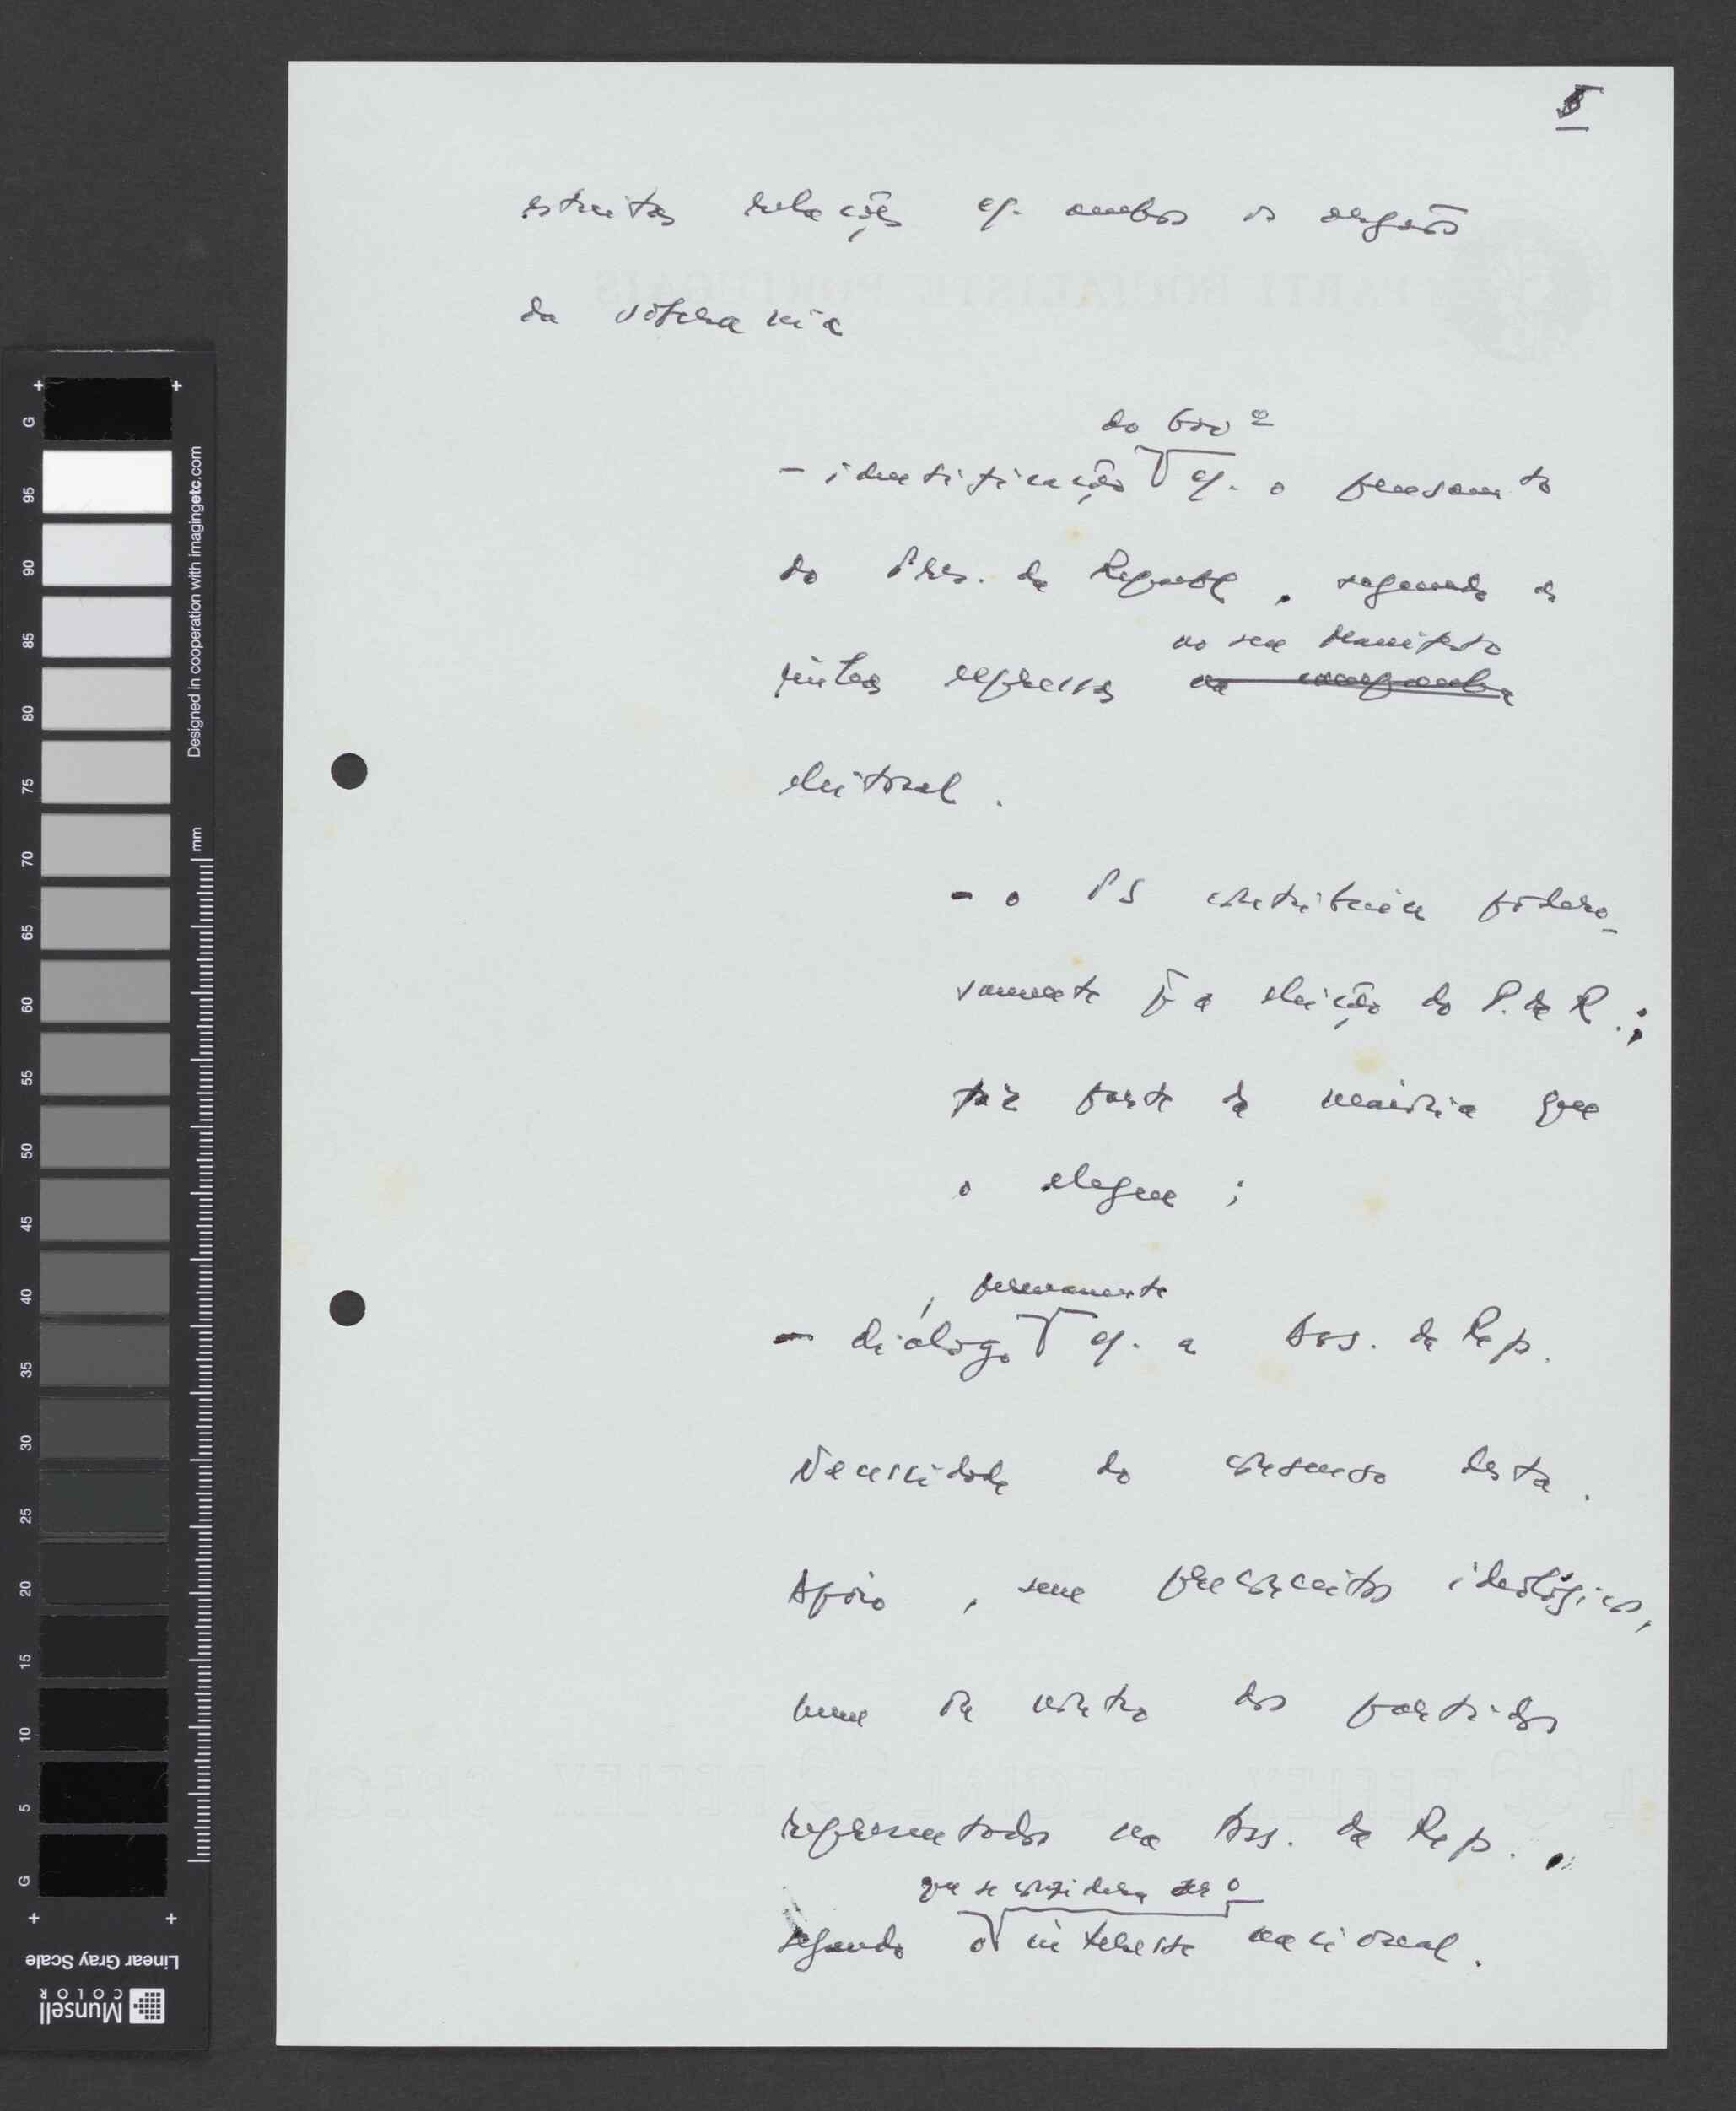 5
estreitas relações c/. ambos os orgãos
da soberania
do Govº
- identificação c/. o pensamto
do Pres. da Repúbl, segundo as
no seu Manifesto
linhas expressas na campanha
eleitoral.
- o PS contribuiu podero-
samente p̄ a eleição do P. da R.;
faz parte da maioria que
o elegeu;
, permanente
- diálogo c/. a Ass. da Rep.
Necessidade do consenso desta.
Apoio, sem preconceitos ideológicos,
num ou noutro dos partidos
representados na Ass. da Rep.
que se considera ser o
segundo o interesse nacional.
PARTI SOCIALISTE PORTUGAIS
G
95
90
85
80
75
70
65
60
55
50
45
40
35
30
25
20
15
10
5
G
Designed in cooperation with imagingetc.com
mm
Linear Gray Scale
Munsell
COLOR